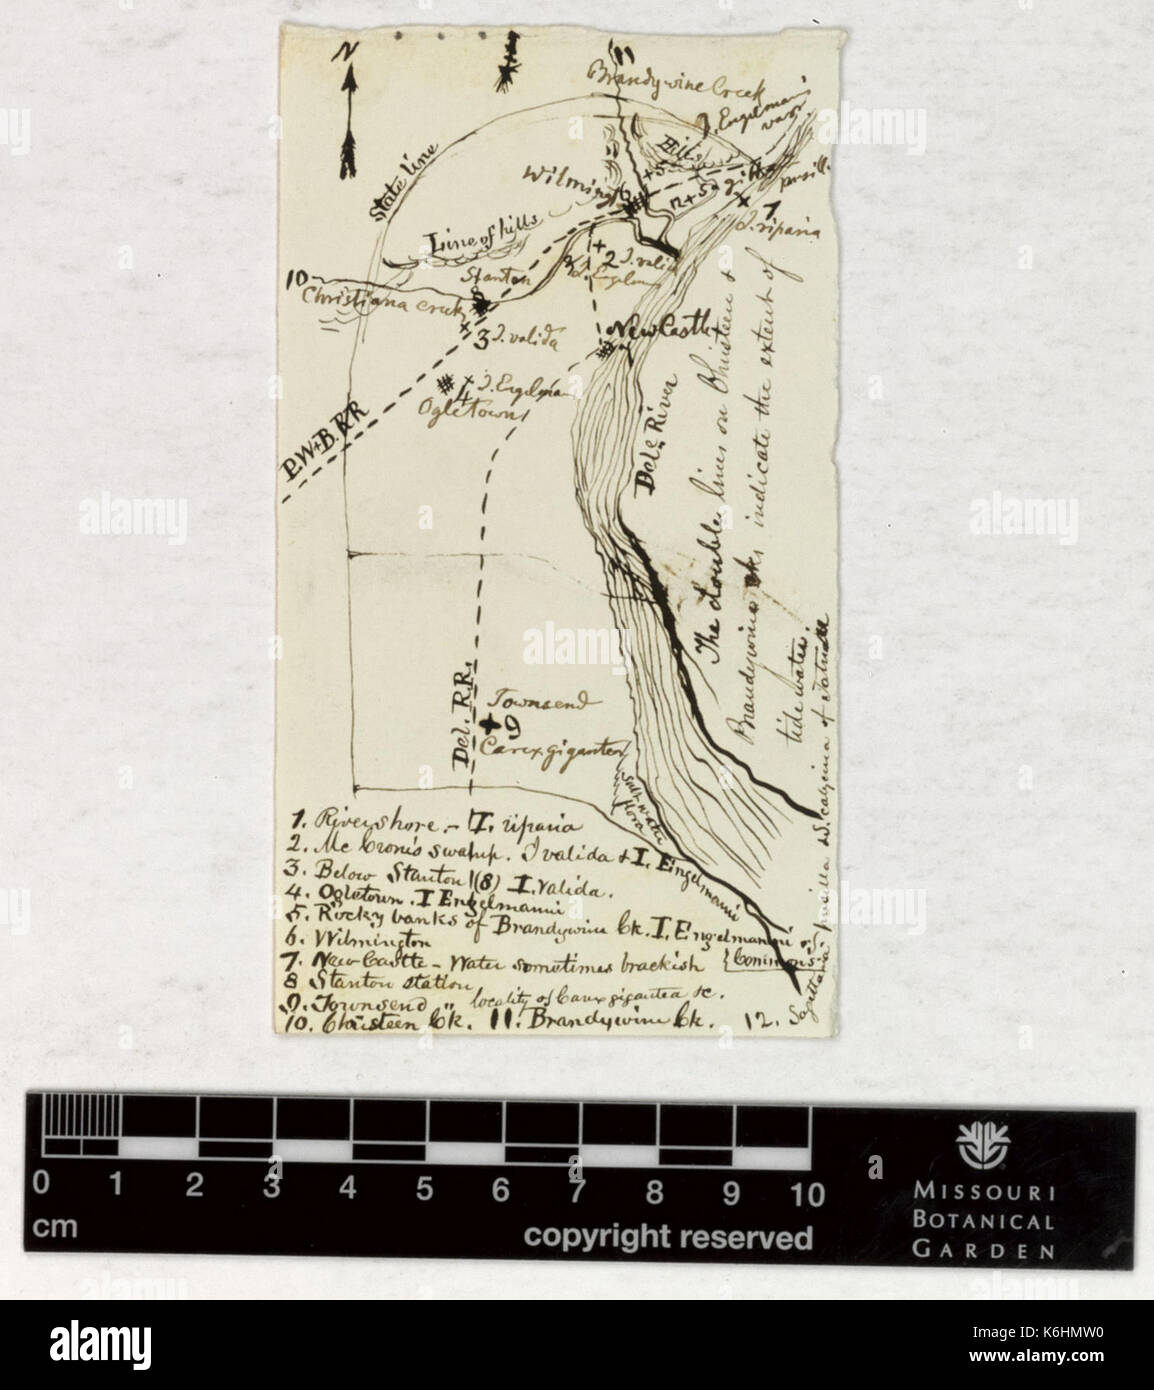 N
11
Brandywine Creek
I. Engelmanni
var
Hills
State line
+5
Wilmington
6
12+5
gibba
pusill
7
I. riparia
Line of hills
1+
2 I. valida
I. Engelm
Stanton
8
10
Christiana creek
3 I. valida
New Castle
4 I. Engelmani
Ogletown
P.W+B.RR
Dele River
The double lines on Christeen &
Brandywine cks indicate the extent of
tide water.
Del. R.R.
Townsend
9
Carex gigantea
Salt water
flora
1. River shore - I. riparia
2. Mc Crone's swamp. I valida & I. Engelmanni
3. Below Stanton (8) I. valida.
4. Ogletown. I Engelmanni
5. Rocky banks of Brandywine Ck. I. Engelmanni
6. Wilmington
7. New Castle - Water sometimes brackish
8 Stanton station
9. Townsend " locality of Carex gigantea &c.
10. Christeen Ck. 11. Brandywine Ck. 12. Sagittaria pusilla & S. calycina of
0 1 2 3 4 5 6 7 8 9 10
cm
copyright reserved
MISSOURI
BOTANICAL
GARDEN
alamy
a
alamy
Image ID: K6HMW0
www.alamy.com